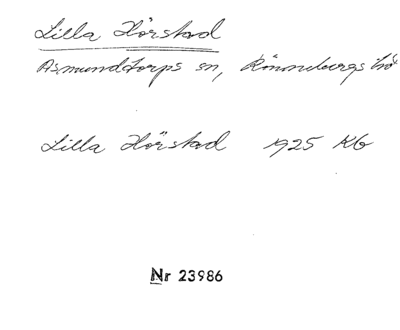 Lilla Hörstad
Asmundtorps sn, Rönnebergs hd
Lilla Hörstad 1925 KG
Nr 23986